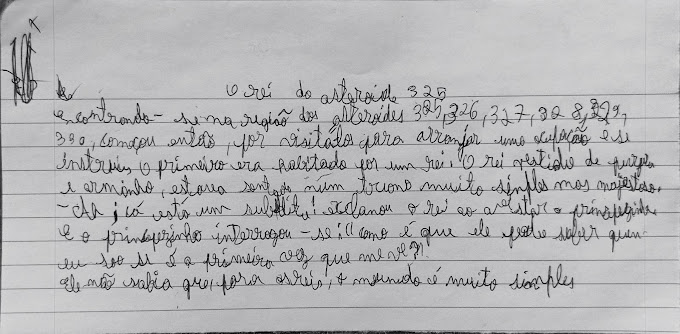 O rei do asteroide 325
encontrando-se na região dos asteroides 325, 326, 327, 328, 329,
330, começou então, por visitálos para arranjar uma ocupação e se
instruir, O primeiro era habitado por um rei. O rei vestido de purpra
e erminho, estava sentado num truno muito simples mas majestoso.
-Ah ¡ cá está um subdito! exclanou o rei ao avistar o principezinho
E o principezinho interrogou-se! Como é que ele pode saber quem
eu sou si é a primeira vez que me vê?!
Ele não sabia que, para os reis, o mundo é muito simples